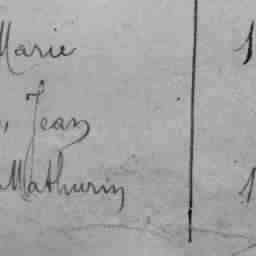 Marie 1
, Jean
Mathurin 1